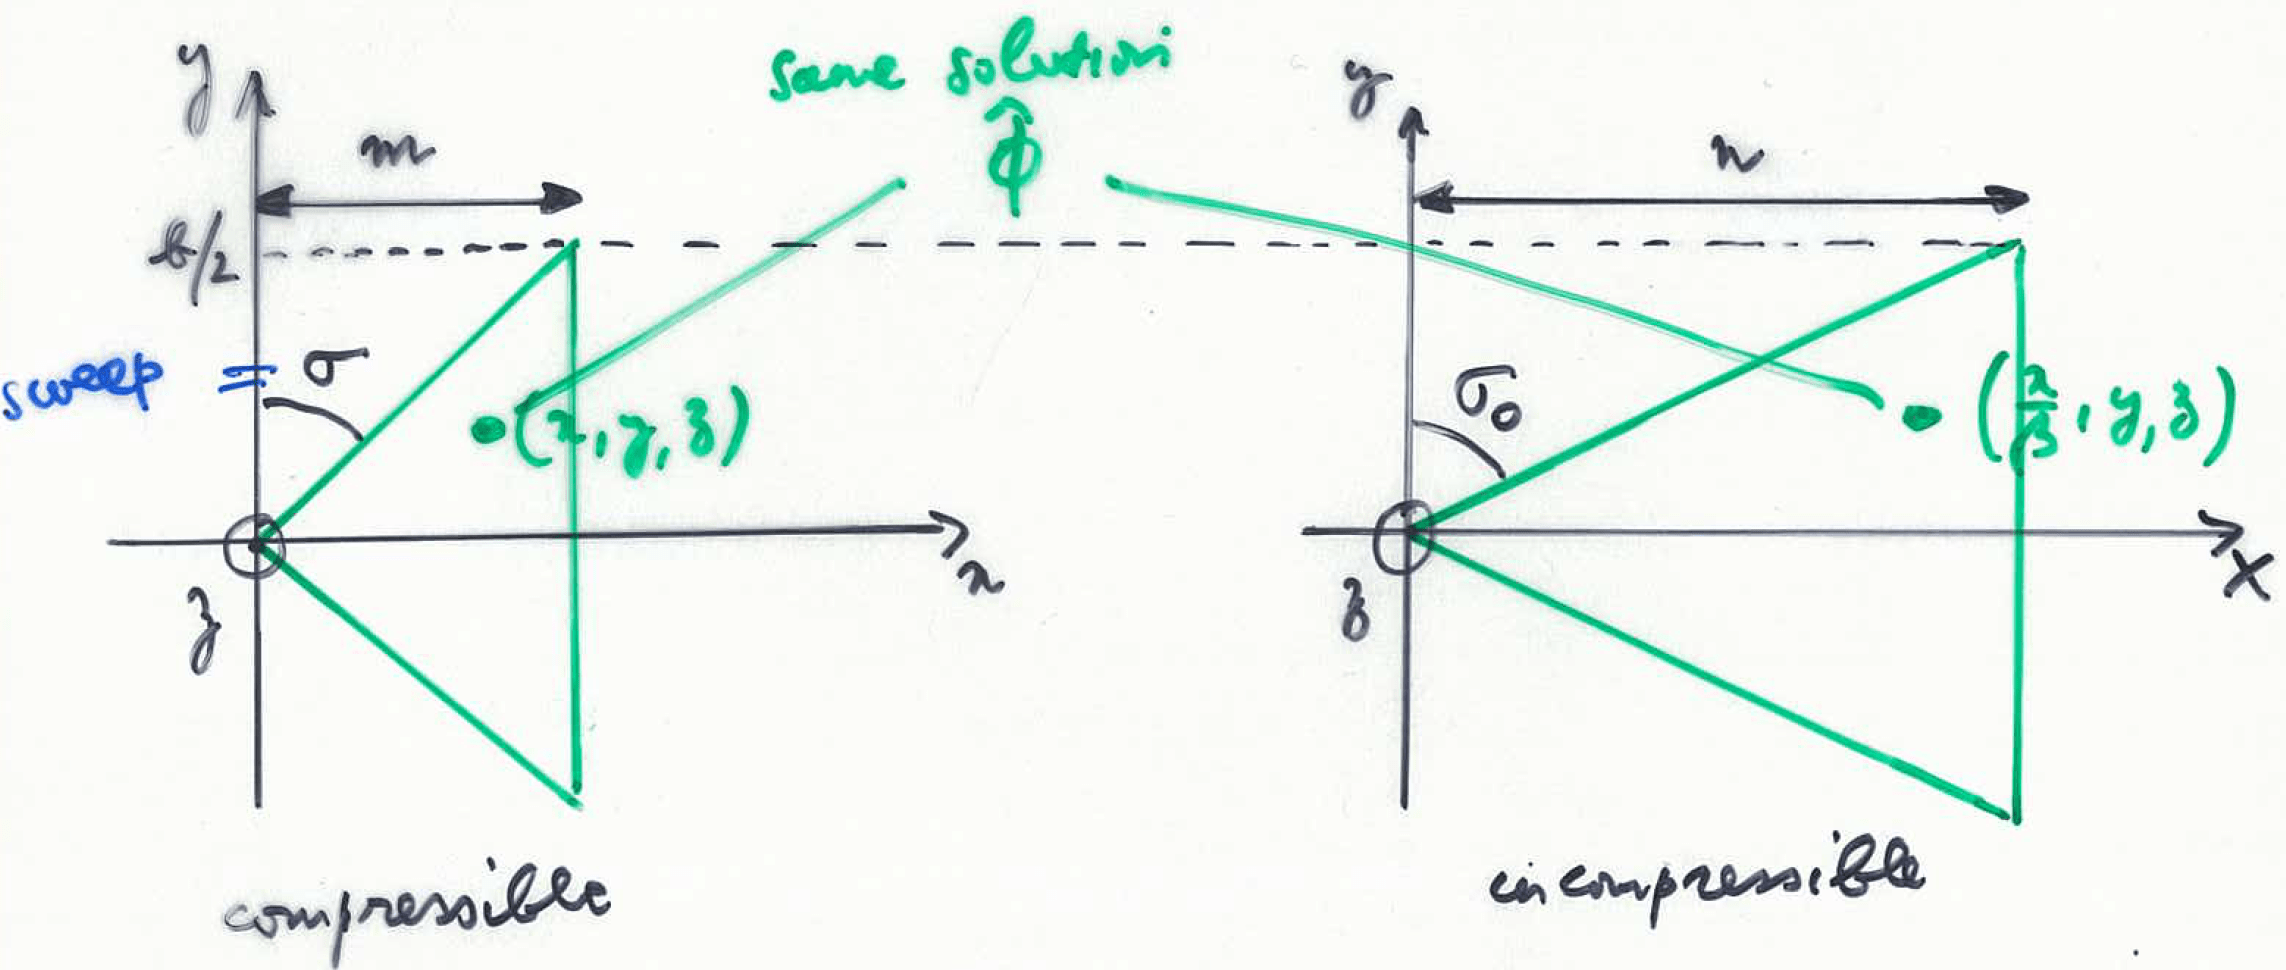 same solution
ϕ̂
y
m
b/2
sweep = σ
(x, y, z)
x
z
compressible
y
n
σ₀
(x/β, y, z)
X
z
incompressible